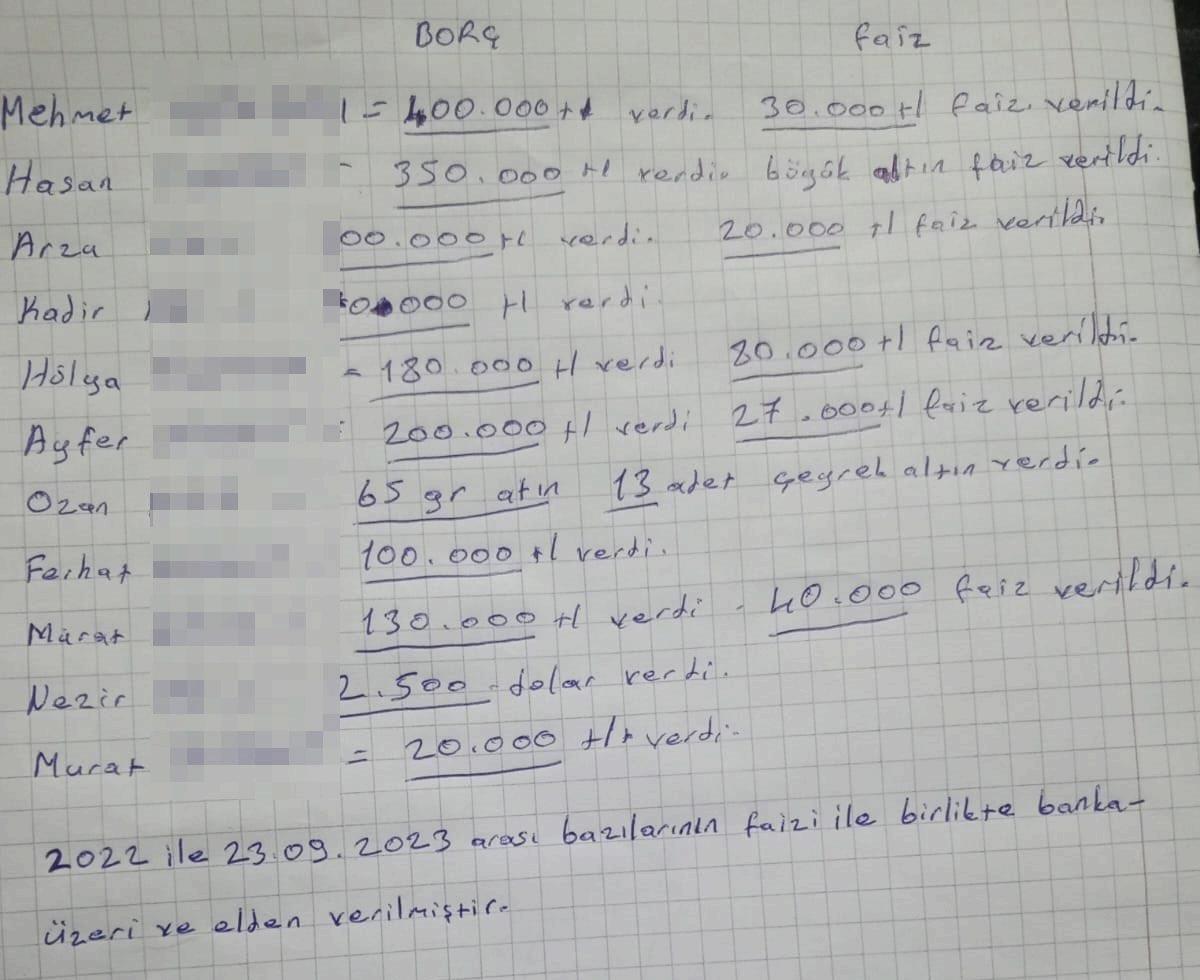 BORÇ faiz
Mehmet = 400.000 tl verdi. 30.000 tl faiz verildi.
Hasan = 350.000 tl verdi. böyük altın faiz verildi.
Arza 00.000 tl verdi. 20.000 tl faiz verildi.
Kadir 0.000 tl verdi.
Hülya = 180.000 tl verdi 80.000 tl faiz verildi.
Ayfer 200.000 tl verdi 27.000 tl faiz verildi.
Ozan 65 gr atın 13 adet çeyrek altın verdi.
Ferhat 100.000 tl verdi.
Murat 130.000 tl verdi. 40.000 faiz verildi.
Nezir 2.500 dolar verdi.
Murat = 20.000 tl verdi.
2022 ile 23.09.2023 arası bazılarının faizi ile birlikte banka-
üzeri ve elden verilmiştir.